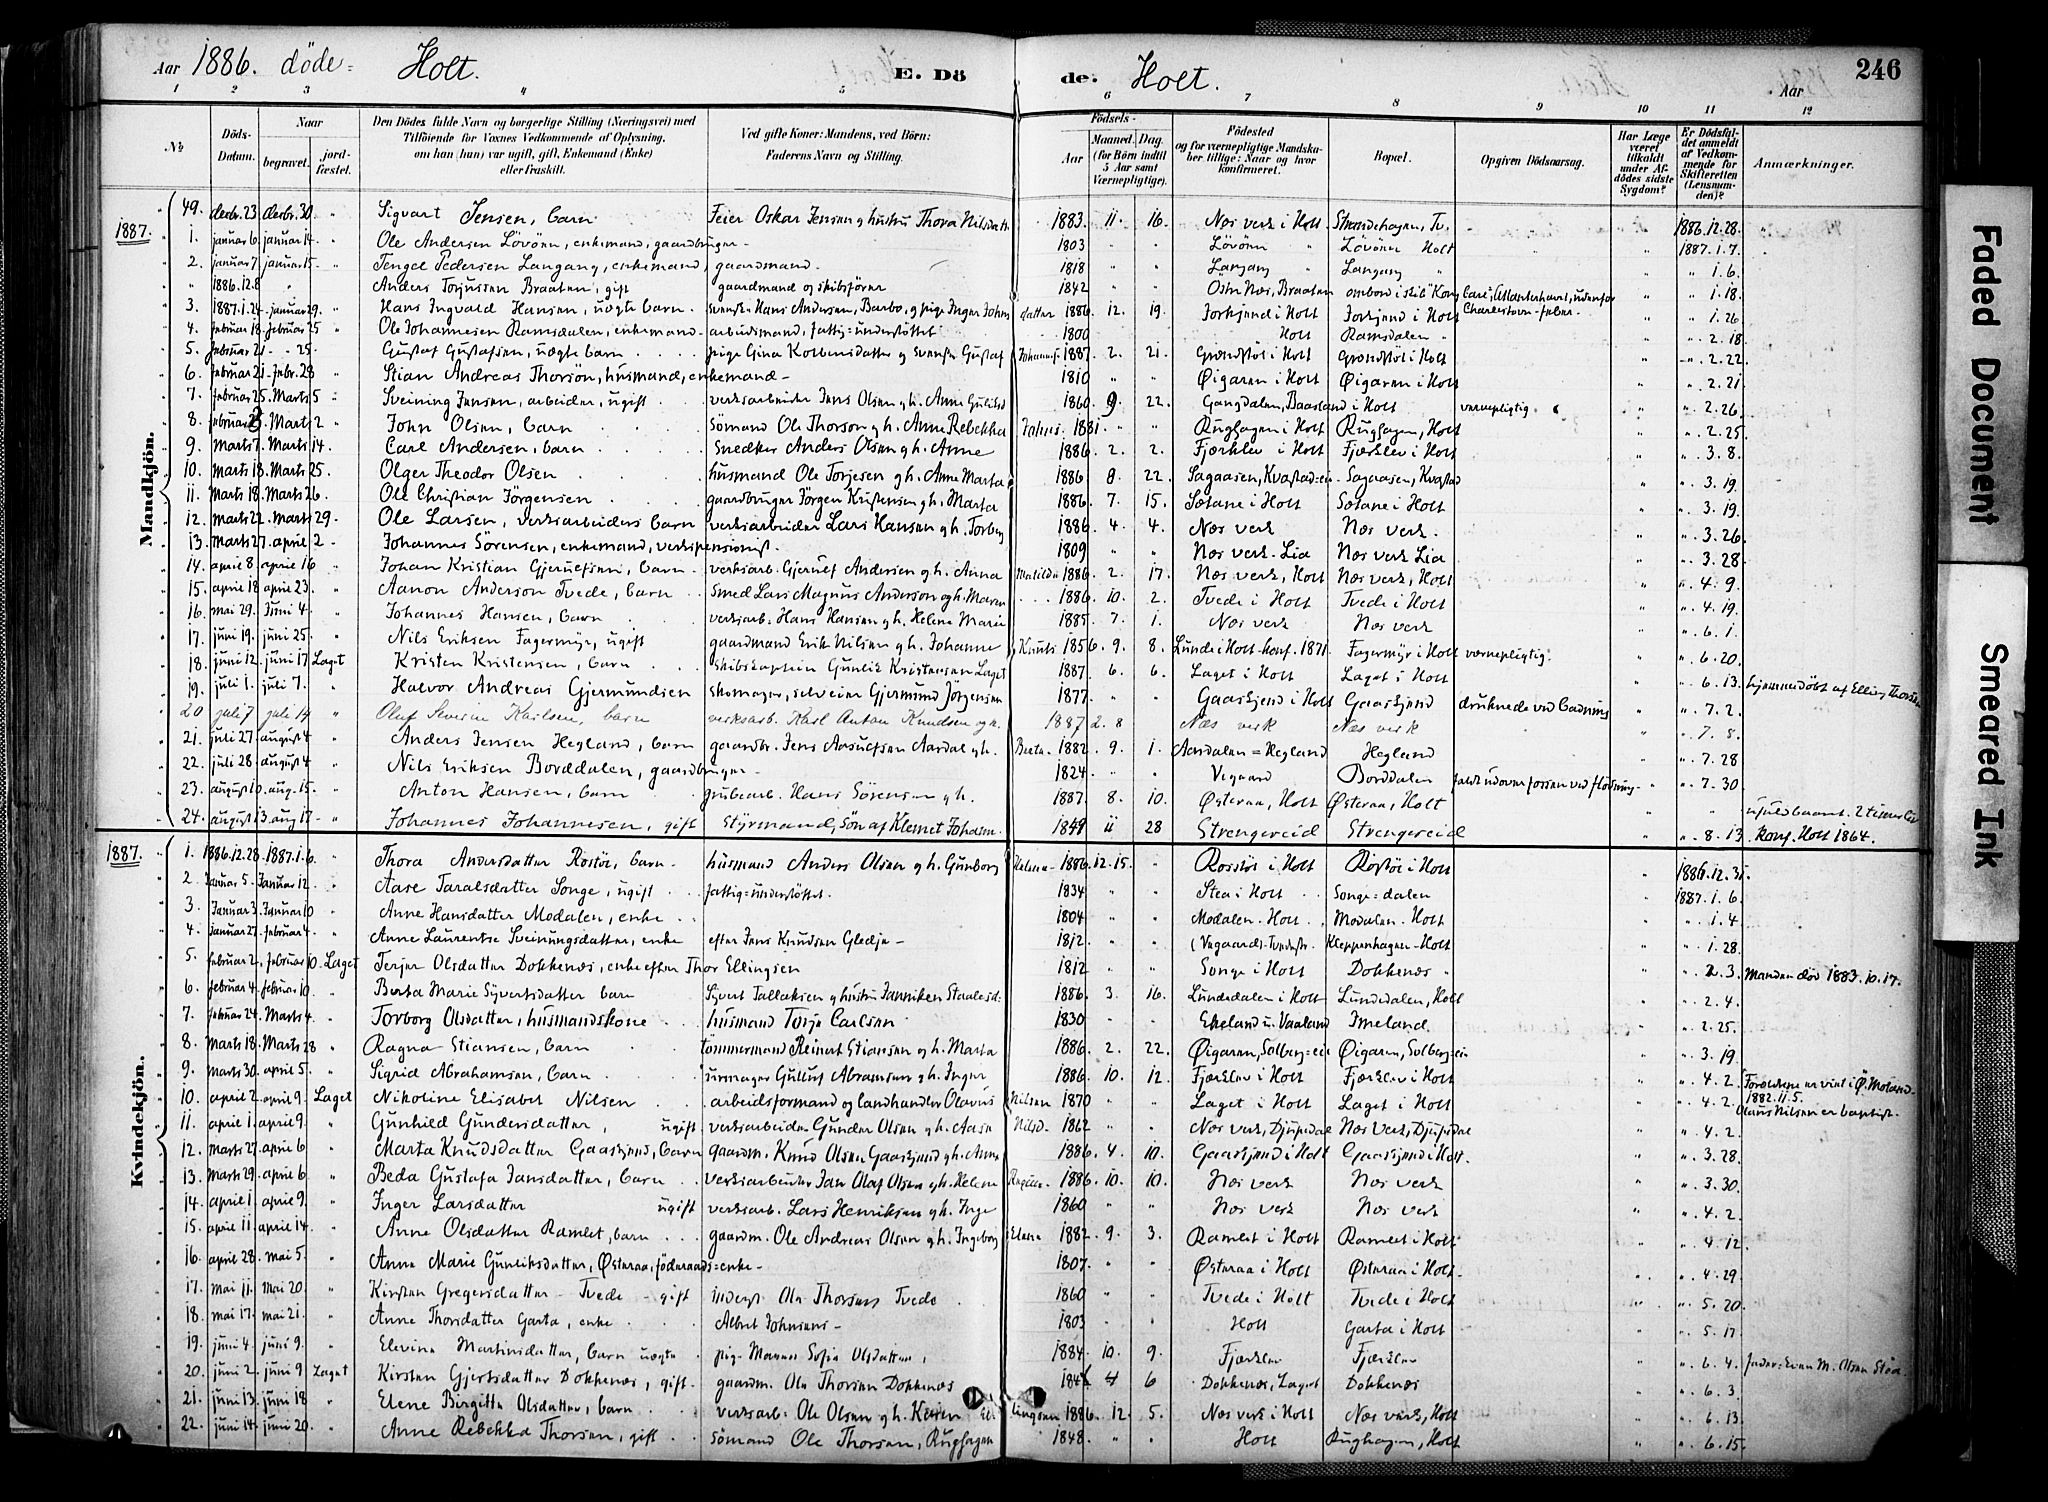 Aar 1886. döde= Holt. E. Dö
de. Holt. Aar 246
1 2 3 4 5
6 7 8 9 10 11 12
№ Döds-Datum. Naar begravet. jordfæstet. Den Dödes fulde Navn og borgerlige Stilling (Næringsvei) med Tilföiende for Voxnes Vedkommende af Oplysning, om han (hun) var ugift, gift, Enkemand (Enke) eller fraskilt. Ved gifte Koner: Mandens, ved Börn: Faderens Navn og Stilling.
Födsels- Aar Maaned. Dag. (for Börn indtil 5 Aar samt Værnepligtige). Födested og for værnepligtige Mandskaber tillige: Naar og hvor konfirmeret. Bopæl. Opgiven Dödsaarsag. Har Læge været tilkaldt under Afdödes sidste Sygdom? Er Dödsfaldet anmeldt af Vedkommende for Skifteretten (Lensmanden)? Anmærkninger.
Mandkjön.
49. decbr. 23 decbr. 30 Sigvart Jensen, barn. Feier Oskar Jensen og hustru Thora 1883. 11. 16. Næs verk i Holt 1886.12.28.
1887. 1. januar 6. januar 14. Ole Andersen Lövönn, enkemand, gaardbruger 1803 Lövönn Lövönn Holt 1887.1.7.
2. januar 7. januar 15. Tengel Pedersen Langang, enkemand, gaardmand. 1818 Langang Langang 1.6.
1886.12.8 Anders Torjussen Braaten, gift gaardmand og skibsförer 1842 Braaten 1.18.
3. 1887.1.24. januar 29. Hans Ingvald Hansen, uægte barn. Hans Andersen, Barbo, og pige Inger 1886. 12. 19. i Holt 1.26
4. februar 18. februar 25 Ole Johannesen Ramsdalen, enkemand - arbeidsmand, fattig=understöttet 1800 Holt Ramsdalen 2.18.
5. februar 21. 25. Gustaf Gustafsen, uægte barn pige Gina 1887. 2. 21. i Holt i Holt 2.22.
6. februar 21. febr. 28 Stian Andreas Thorsön, husmand, enkemand 1810 Øigaren i Holt Øigaren i Holt 2.21.
7. februar 25. Marts 5 Sveining Jensen, arbeider, ugift verksarbeider Jens Olsen og h. Anne 1860. 9. 22. i Holt værnepligtig 2.26.
8. Marts 2 John Olsen, barn Sömand Ole Thorson og h. Anne Rebekka 1881. Rughagen i Holt Rughagen, Holt 2.25.
9. Marts 7. Marts 14. Carl Andersen, barn Snedker Anders Olsen og h. Anne 1886. 2. 2. Fjærklev i Holt Fjærklev i Holt 3.8.
10. Marts 18. Marts 25. Olger Theodor Olsen husmand Ole Torjesen og h. Anne Marta 1886. 8. 22. Sagaasen, Kvastad=ei Sagaasen, Kvastad 3.19.
11. Marts 18. Marts 26. Ole Christian Jörgensen gaardbruger Jörgen Kristensen og h. Marta 1886. 7. 15. Sætane i Holt Sætane i Holt 3.19.
12. Marts 22. Marts 29. Ole Larsen, verksarbeiders barn verksarbeider Lars Hansen og h. Torborg 1886. 4. 4. Næs verk Næs verk. 3.26.
13. Marts 27. april 2 Johannes Sörensen, enkemand, verkspensionist. 1809 Næs verk. Lia Næs verk Lia 3.28.
14. april 8 april 16 Johan Kristian barn verksarb. Andersen og h. Anna Matilde 1886. 2. 17. Næs verk, Holt Næs verk, Holt 4.9.
15. april 18 april 23. Aanon Anderson Tvede, barn Smed Lars Magnus Anderson og h. Maren 1886. 10. 2. Tvede i Holt Tvede i Holt 4.19.
16. mai 29. Juni 4. Johannes Hansen, barn verksarb. Hans Hansen og h. Helene Marie 1885. 7. 1. Næs verk Næs verk 6.1.
17. juni 19. juni 25. Nils Eriksen Fagermyr, ugift gaardmand Erik Nilsen og h. Johanne 1856. 9. 8. Lunde i Holt - konf. 1871. Fagermyr i Holt værnepligtig. 6.20.
18. juni 12. juni 17 Laget Kristen Kristensen, barn skibskaptein Gunlik Kristensen Laget 1887. 6. 6. Laget i Holt Laget i Holt 6.13. hjemmedöbt af
19. juli 1. juli 7. Halvor Andreas Gjermundsen skomager, selveier Gjermund Jörgensen 1877. Gaaskjend i Holt Gaaskjend druknede ved badning 7.2.
20 juli 7 juli 14 Oluf Severin Karlsen, barn verksarb. Karl Anton Knudsen og h. 1887 2. 8 Næs verk Næs verk 7.8.
21. juli 27. august 4 Anders Jensen Hegland, barn gaardbr. Jens Aardal og h. Berta 1882. 9. 1. Aardalen = Hegland Hegland 7.28
22. juli 28. august 4 Nils Eriksen Borddalen, gaardbruger 1824 Vegaard Borddalen faldt udover fossen ved flödning 7.30.
23. august 10. aug. 15. Anton Hansen, barn grubearb. Hans Sörensen og h. 1887. 8. 10. Østeraa, Holt Østeraa, Holt
24. august 13 aug 17 Johannes Johannesen, gift Styrmand, Sön af Klemet Johann. 1849 11 28 Strengereid Strengereid 8.13 konf. Holt 1864.
Kvindekjön.
1887. 1. 1886.12.28. 1887.1.6. Thora Andersdatter Röstöl, barn husmand Anders Olsen og h. Gunborg 1886.12.15. i Holt Röstöl i Holt 1886.12.31.
2. Januar 5. Januar 12. Aase Taralsdatter Songe, ugift fattig=understöttet. 1834 Stea i Holt Songe=dalen 1887.1.6.
3. Januar 3. Januar 10 Anne Hansdatter Modalen, enke 1804 Modalen. Holt Modalen. Holt 1.4
4. januar 27. februar 4. Anne Laurentse Sveinungsdatter, enke efter Jens Knudsen Gledje 1812 (Vegaard) Kleppenhagen - Holt 1.28.
5. februar 2. februar 10. Laget Terjer Olsdatter Dokkenæs, enke efter Thor Ellingsen 1812 Songe i Holt Dokkenæs 2.3. Manden död 1883.10.17.
6. februar 4. februar 10. Berta Marie Syvertsdatter barn Syvert Tallaksen og hustru Janniken 1886. 3. 16. Lundedalen i Holt Lundedalen, Holt 2.4.
7. februar 24. Marts 4. Torborg Olsdatter, husmandskone husmand Terje Carlsen 1830 Ekeland u. Vaaland Imeland. 2.25.
8. Marts 18. Marts 28 Ragna Stiansen, barn tömmermand Reinert Stiansen og h. Marta 1886. 2. 22. Øigaren, Solberg=ei Øigaren, Solberg=ei 3.19.
9. marts 30. april 5. Sigrid Abrahamsen, barn urmager Abramsen og h. Inger 1886. 10. 12. Fjærklev i Holt Fjærklev i Holt 4.2. Forældrene er viet i Ø. Moland 1882.11.5.
10. april 2. april 9. Laget Nikoline Elisabet Nilsen arbeidsformand og landhandler Olavus Nilsen 1870 Laget i Holt Laget i Holt 4.2. Olavus Nilsen er baptist.
11. april 1. april 9. Gunhild Gundersdatter, ugift verksarbeider Gunder Olsen og h. Aase Nilsd. 1862 Næs verk, Djupedal Næs Verk, Djupedal 4.2.
12. marts 27. april 6 Marta Knudsdatter Gaaskjend, barn gaardm. Knud Olsen Gaaskjend og h. Anne 1886. 4. 10. Gaaskjend i Holt Gaaskjend i Holt. 3.28.
13. Marts 29. april 6. Beda Gustafa Jansdatter, barn verksarbeider Jan Olaf Olsen og h. Helene 1886. 10. 10. Næs verk Næs verk 3.30.
14. april 1. april 9. Inger Larsdatter ugift verksarb. Lars Henriksen og h. Inge 1860 Næs verk Næs verk 4.2.
15. april 11. april 14. Anne Olsdatter Ramlet, barn gaardm. Ole Andreas Olsen og h. Ingeborg 1882. 9. 3. Ramlet i Holt Ramlet i Holt 4.12.
16. april 28. mai 5. Anne Marie Gunliksdatter, Østeraa, föderaads=enke 1807. Østeraa i Holt Østeraa i Holt 4.29.
17. mai 11. mai 20. Kirsten Gregersdatter - Tvede - gift inderst Ole Thorsen Tvede 1860 Tvede i Holt Tvede i Holt 5.20
18. mai 17. mai 21. Anne Thorsdatter Garta, enke Albret Johnsens 1803 Holt Garta i Holt 5.17
19. juni 4. juni 9. Elevine Martinsdatter, barn uægte pige Sofie Olsdatter, 1884. 10. 9. Fjærklev Fjærklev 6.4. fader: Even M. Olsen Stea.
20. juni 2. juni 9 Laget Kirsten Gjertsdatter Dokkenæs, gift gaardm. Ole Thorsen Dokkenæs 4 6 Dokkenæs, Laget Dokkenæs 6.3.
21. juni 13. juni 18 Elene Birgitte Olsdatter, barn verksarb. Ole Olsen og h. Karen Ellingsen 1886. 12. 5. Næs verk i Holt Næs verk, Holt 6.13.
22. juni 14. juni 20. Anne Rebekka Thorsen, gift sömand Ole Thorsen, Rughagen 1848. Holt Rughagen, Holt 6.15.
Faded Document
Smeared Ink